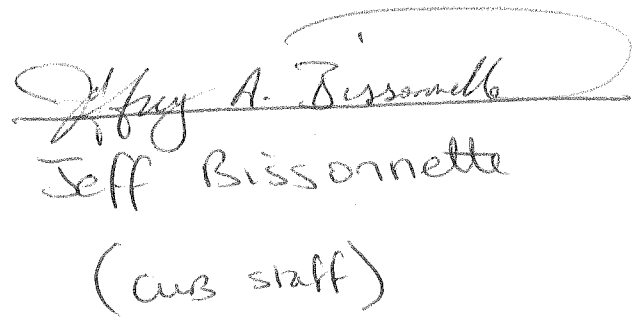 Jeffrey A. Bissonnette
Jeff Bissonnette
(CUB staff)